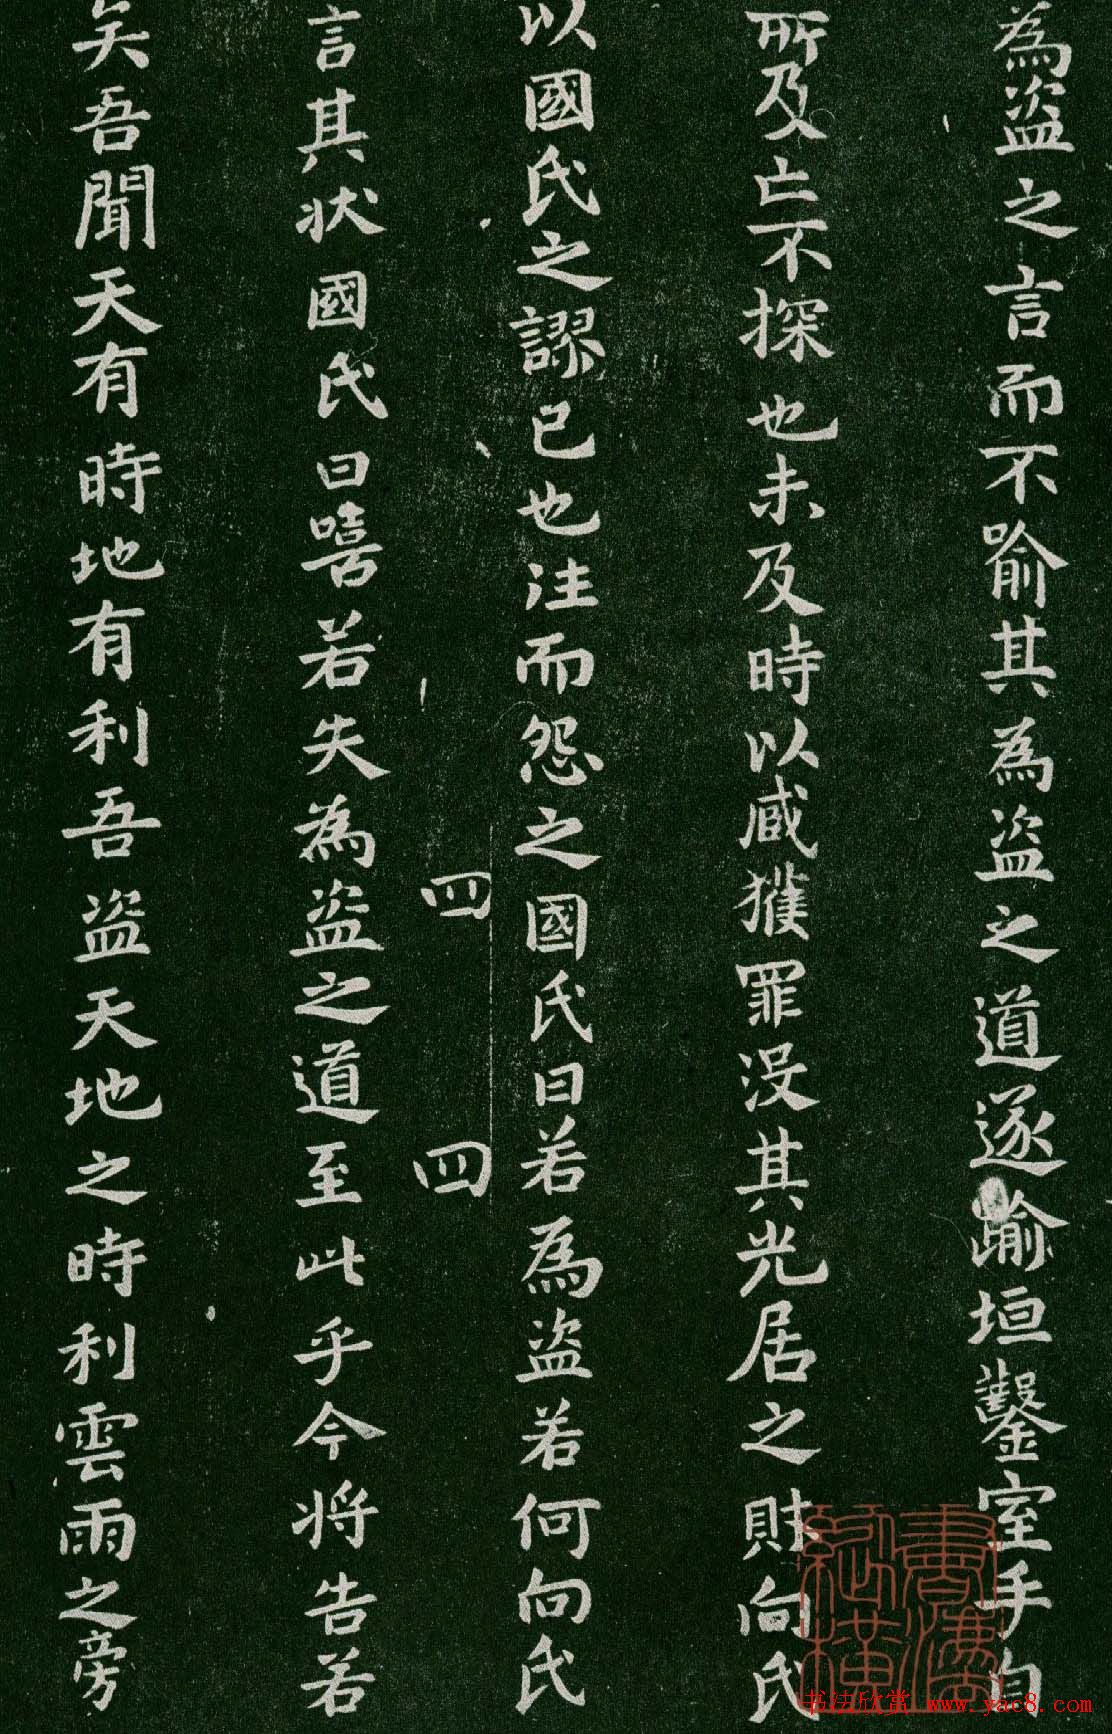 為盜之言而不喻其為盜之道遂踰垣鑿室手目
所及亡不探也未及時以臧獲罪沒其先居之財向氏
以國氏之謬己也注而怨之國氏曰若為盜若何向氏
四 四
言其狀國氏曰嘻若失為盜之道至此乎今將告若
矣吾聞天有時地有利吾盜天地之時利雲雨之旁
書法欣赏 www.yac8.com